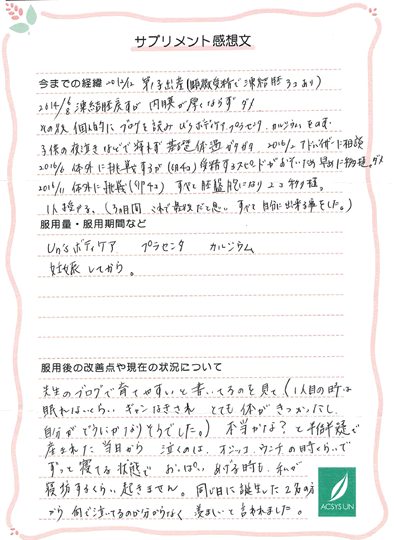 サプリメント感想文
今までの経緯 2012/12 第1子出産(顕微受精で凍結胚3コあり)
2014/6 8 凍結胚戻すが 内膜が厚くならず ダメ
その後 個人的に ブログを読み Un'sボディケア、プラセンタ、カルシウムを
子供の夜泣きなどで 基礎体温 ガタガタ 2016/2 アドバイザーに相談
2016/6 体外に挑戦するが 受精するスピードがおそいため 早めに ダメ
2016/11 体外に挑戦 すべて胚盤胞になり 2コ
(3カ月間 これで最後だと思い すべて自分に出来る事をした。)
服用量・服用期間など
Un'sボディケア プラセンタ カルシウム
妊娠してから。
服用後の改善点や現在の状況について
先生のブログで育てやすいと書いてるのを見て(1人目の時は
眠れないくらい ギャン泣きされ とても体がきつかったし
自分がどうにかなりそうでした。) 本当かな?と半信半疑で
産まれた当日から 泣くのは、オシッコ、ウンチの時くらいで
ずっと寝てる状態で おっぱい あげる時も、私が
寝坊するくらい 起きません。同じ日に誕生した2名の方
から 何で泣いてるのか分からなく 羨ましいと言われました。
ACSYS UN